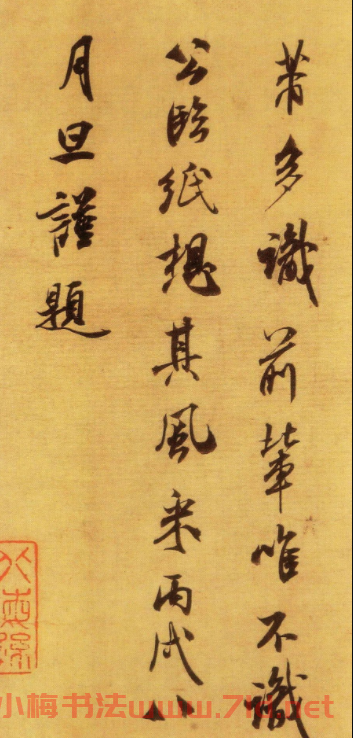 芾多識前輩唯不識
公臨紙想其風采丙戌八
月旦謹題
小梅书法